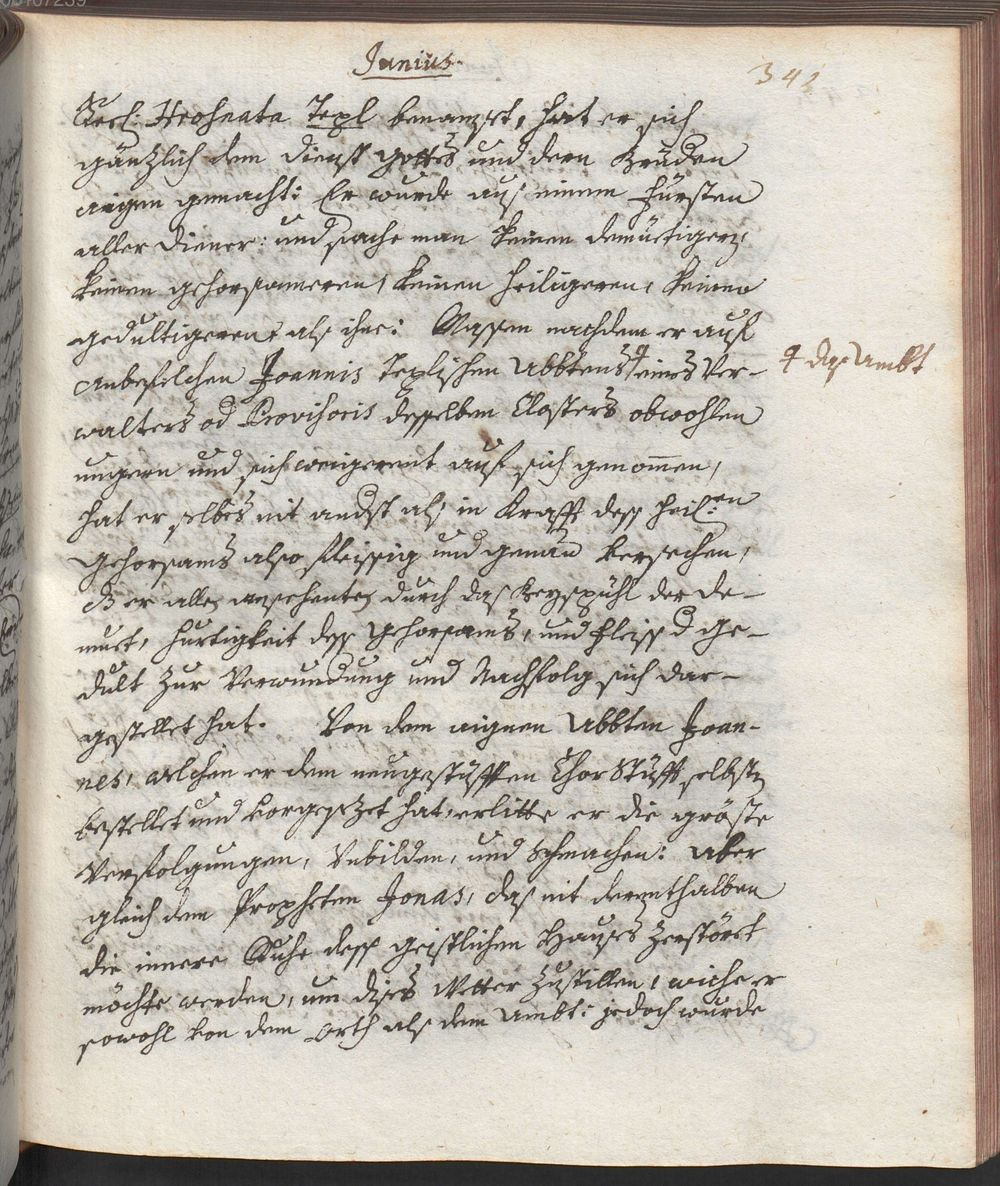 Junius.
342
Seel: Hroznata Tepl benamzet, hat er sich
gäntzlich dem dienst gottes und dem Brüdern
aigen gemacht: Er wurde aus einem Fürsten
aller Diener: und sache man keinen demüetigern,
keinen gehorsameren, keinen heiligeren, keinen
gedultigeren als ihne: Massen nachdem er auf
anbefelchen Joannis Teplischen Abbtens eines Ver-
das Ambt
walters od Provisoris desselben Closters obwohlen
ungern und sich weigerent auf sich genommen,
hat er selbes nit andst als in Krafft dess heil:en
gehorsams also fleissig und genau versechen,
dz er allen ansehenten durch das Beyspühl der De-
muet, hurtigkeit dess gehorsams, und fleiss d ge-
dult zur Verwundung und Nachfolg sich dar-
gestellet hat. Von dem aignen Abbten Joan-
nes, welchen er dem neugestüfften Chor Stüfft selbsten
bestellet und vorgesezet hat, erlitte er die gröste
Verfolgungen, Unbilden, und Schmachen: aber
gleich dem Propheten Jonas, das nit derenthalben
die innere Ruhe dess geistlichen Hauses zerstöret
möchte werden, um dises Wetter zustillen, wiche er
sowohl von dem orth als dem Ambt: jedoch wurde